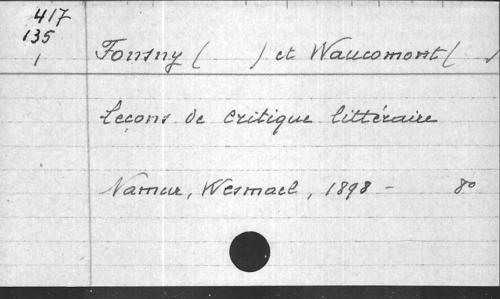 417
135
1
Fonsny ( ) et Waucomont ( )
Leçons de critique littéraire
Namur, Wesmael, 1898 - 8°